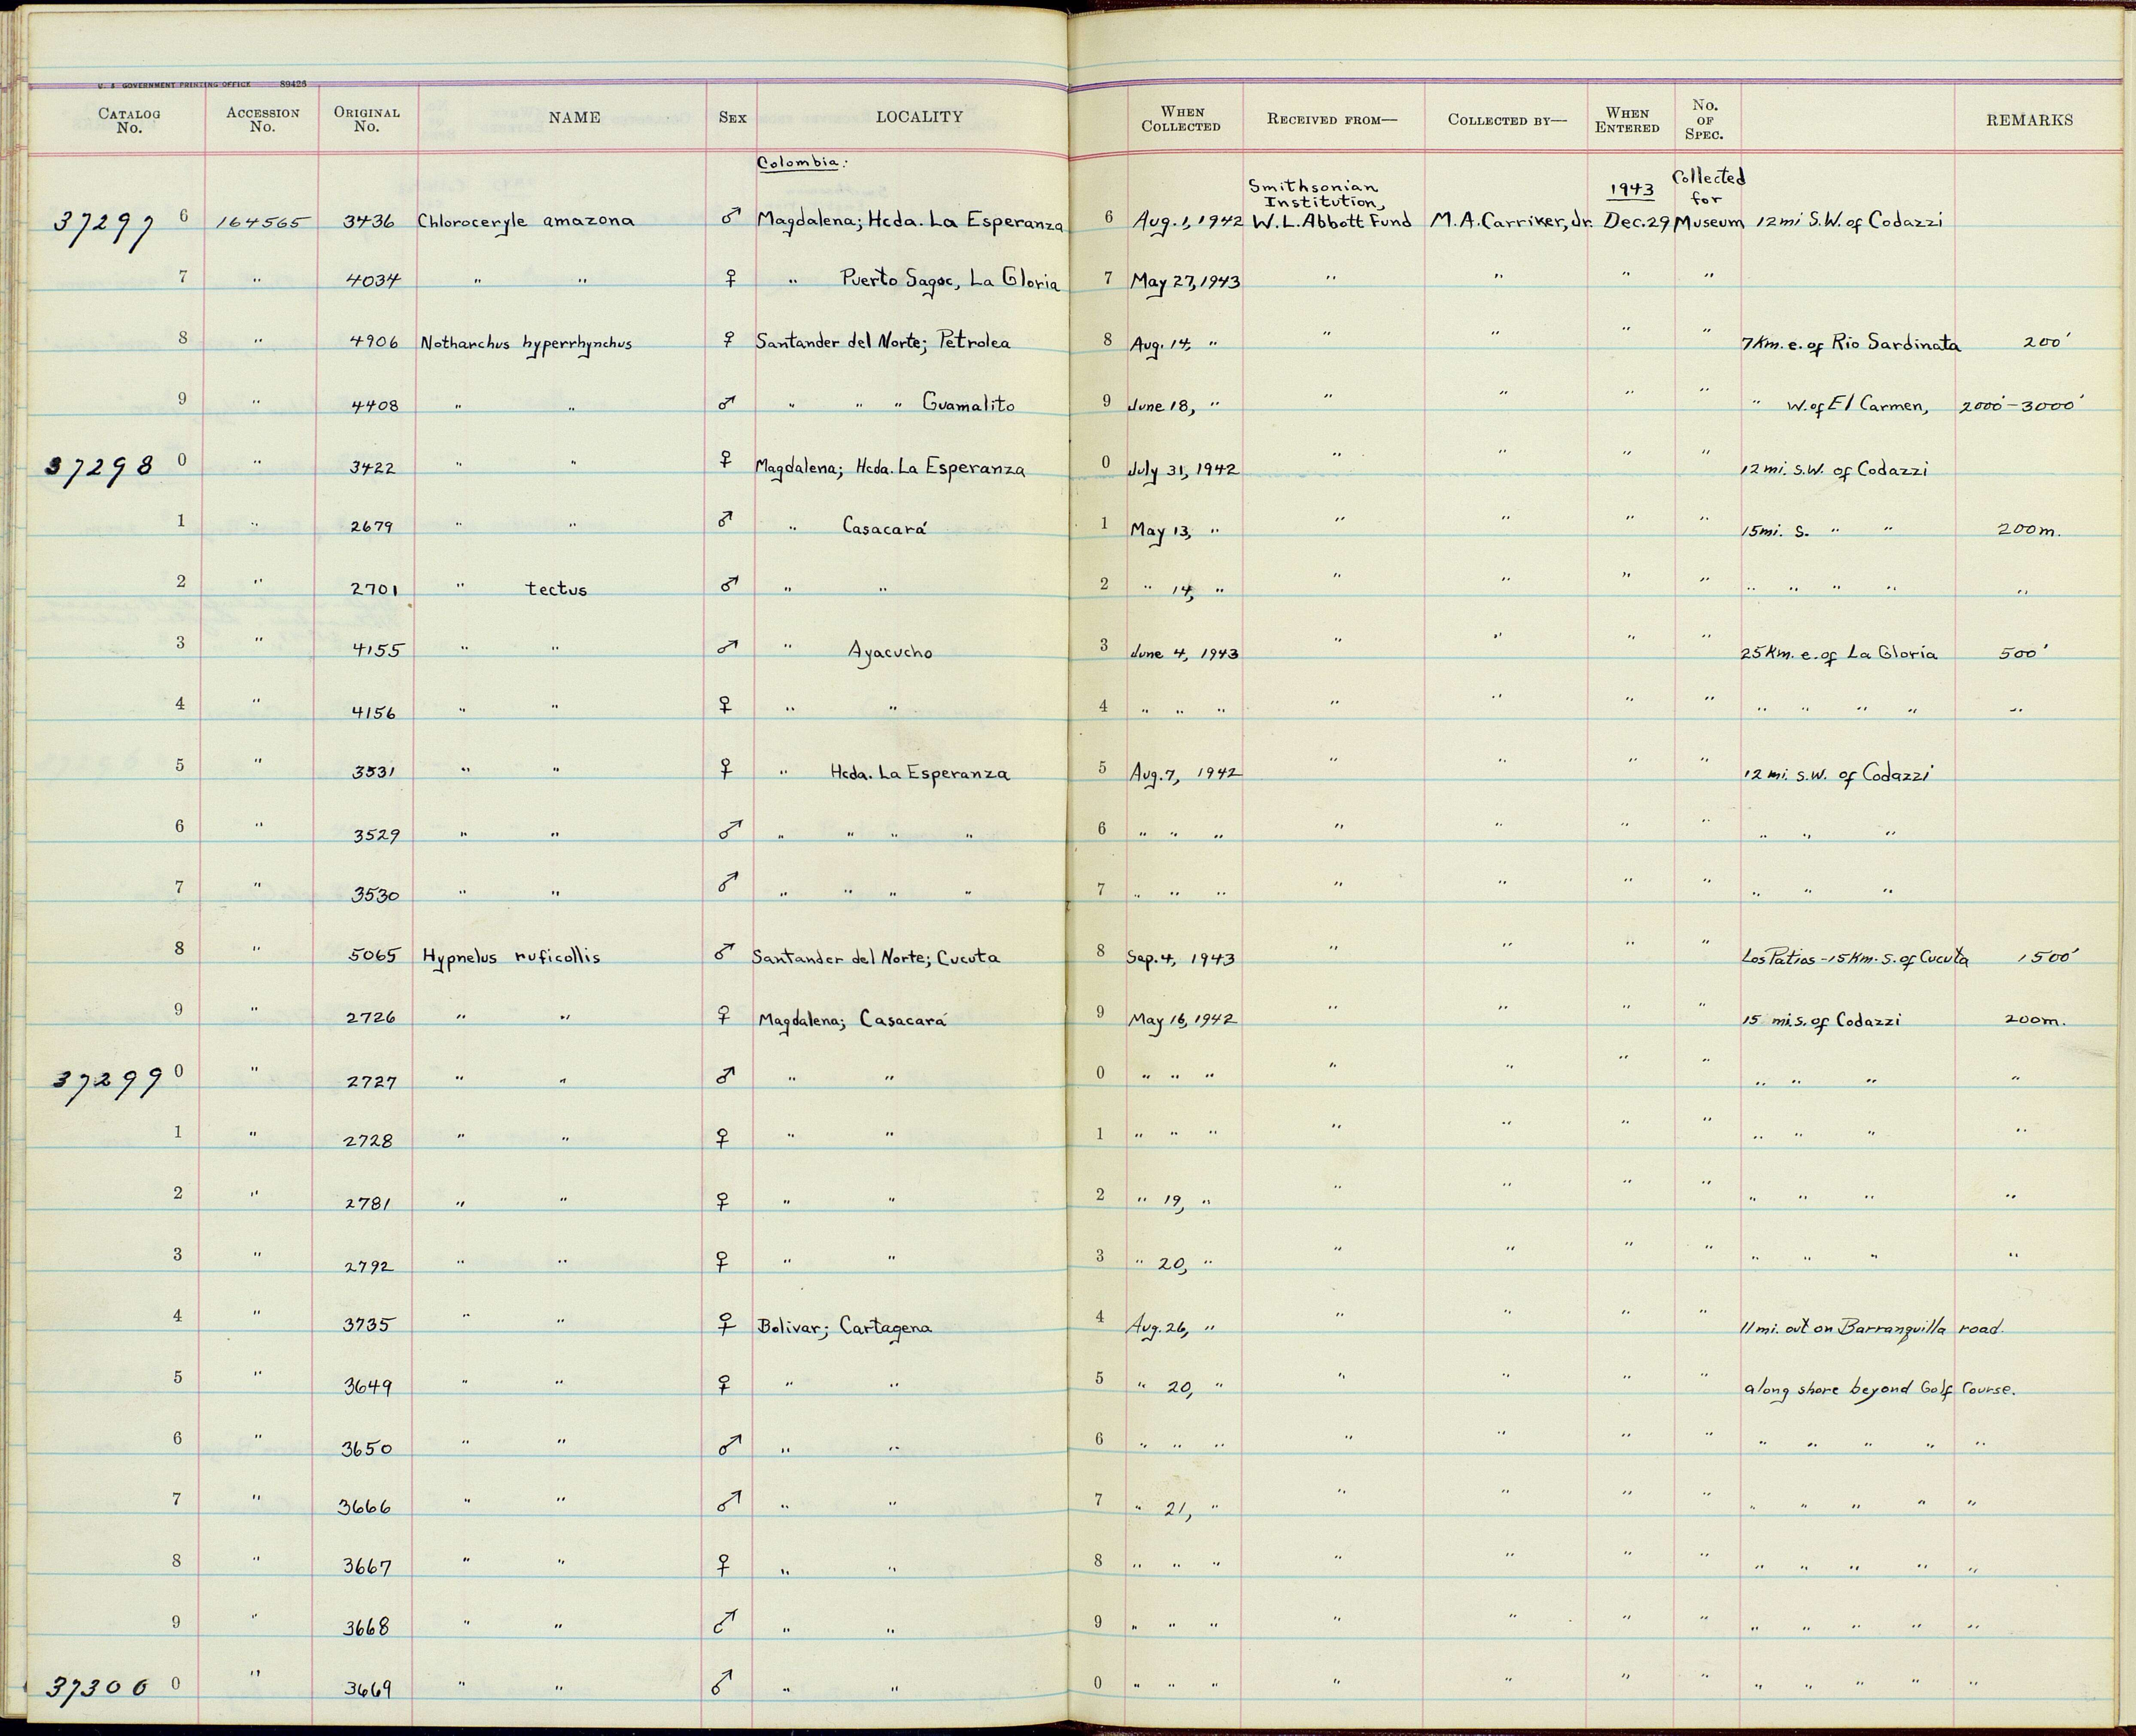 U. S. GOVERNMENT PRINTING OFFICE 89426
CATALOG No. ACCESSION No. ORIGINAL No. NAME SEX LOCALITY WHEN COLLECTED RECEIVED FROM— COLLECTED BY— WHEN ENTERED No. OF SPEC. REMARKS
Colombia:
37297 6 164565 3436 Chloroceryle amazona ♂ Magdalena; Hcda. La Esperanza 6 Aug. 1, 1942 Smithsonian Institution, W. L. Abbott Fund M. A. Carriker, Jr. 1943 Dec. 29 Collected for Museum 12 mi S.W. of Codazzi
7 " 4034 " " ♀ " Puerto Sagoc, La Gloria 7 May 27, 1943 " " " "
8 " 4906 Notharchus hyperrhynchus ♀ Santander del Norte; Petrolea 8 Aug. 14, " " " " " 7 Km. e. of Rio Sardinata 200'
9 " 4408 " " ♂ " " " Guamalito 9 June 18, " " " " " " W. of El Carmen, 2000'-3000'
37298 0 " 3422 " " ♀ Magdalena; Hcda. La Esperanza 0 July 31, 1942 " " " " 12 mi. S.W. of Codazzi
1 " 2679 " " ♂ " Casacará 1 May 13, " " " " " 15 mi. S. " " 200 m.
2 " 2701 " tectus ♂ " " 2 " 14, " " " " " " " " " "
3 " 4155 " " ♂ " Ayacucho 3 June 4, 1943 " " " " 25 Km. e. of La Gloria 500'
4 " 4156 " " ♀ " " 4 " " " " " " " " " " " "
5 " 3531 " " ♀ " Hcda. La Esperanza 5 Aug. 7, 1942 " " " " 12 mi. S.W. of Codazzi
6 " 3529 " " ♂ " " " " 6 " " " " " " " " " "
7 " 3530 " " ♂ " " " " 7 " " " " " " " " " "
8 " 5065 Hypnelus ruficollis ♂ Santander del Norte; Cucuta 8 Sep. 4, 1943 " " " " Los Patios - 15 Km. S. of Cucuta 1500'
9 " 2726 " " ♀ Magdalena; Casacará 9 May 16, 1942 " " " " 15 mi. S. of Codazzi 200 m.
37299 0 " 2727 " " ♂ " " 0 " " " " " " " " " " "
1 " 2728 " " ♀ " " 1 " " " " " " " " " " "
2 " 2781 " " ♀ " " 2 " 19, " " " " " " " " "
3 " 2792 " " ♀ " " 3 " 20, " " " " " " " " "
4 " 3735 " " ♀ Bolivar; Cartagena 4 Aug. 26, " " " " " 11 mi. out on Barranquilla road.
5 " 3649 " " ♀ " " 5 " 20, " " " " " along shore beyond Golf Course.
6 " 3650 " " ♂ " " 6 " " " " " " " " " " " "
7 " 3666 " " ♂ " " 7 " 21, " " " " " " " " " "
8 " 3667 " " ♀ " " 8 " " " " " " " " " " " "
9 " 3668 " " ♂ " " 9 " " " " " " " " " " " "
37300 0 " 3669 " " ♂ " " 0 " " " " " " " " " " " "